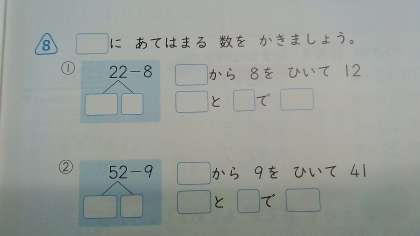 8 □に あてはまる 数を かきましょう。
① 22－8 □から 8を ひいて 12
□と □で □
② 52－9 □から 9を ひいて 41
□と □で □